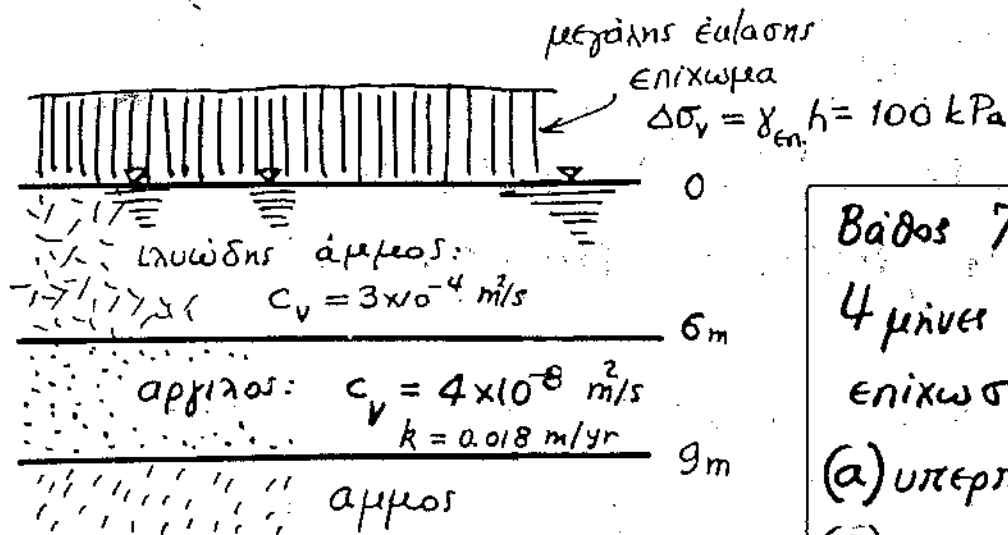 μεγάλης έκτασης
επίχωμα
Δσᵥ = γ_επ. h = 100 kPa
0
ιλυώδης άμμος:
C_v = 3x10⁻⁴ m²/s
6m
αργιλος: C_v = 4x10⁻⁸ m²/s
k = 0.018 m/yr
9m
αμμος
Βάθος 7
4 μήνες
επίχωσ
(a) υπερπ